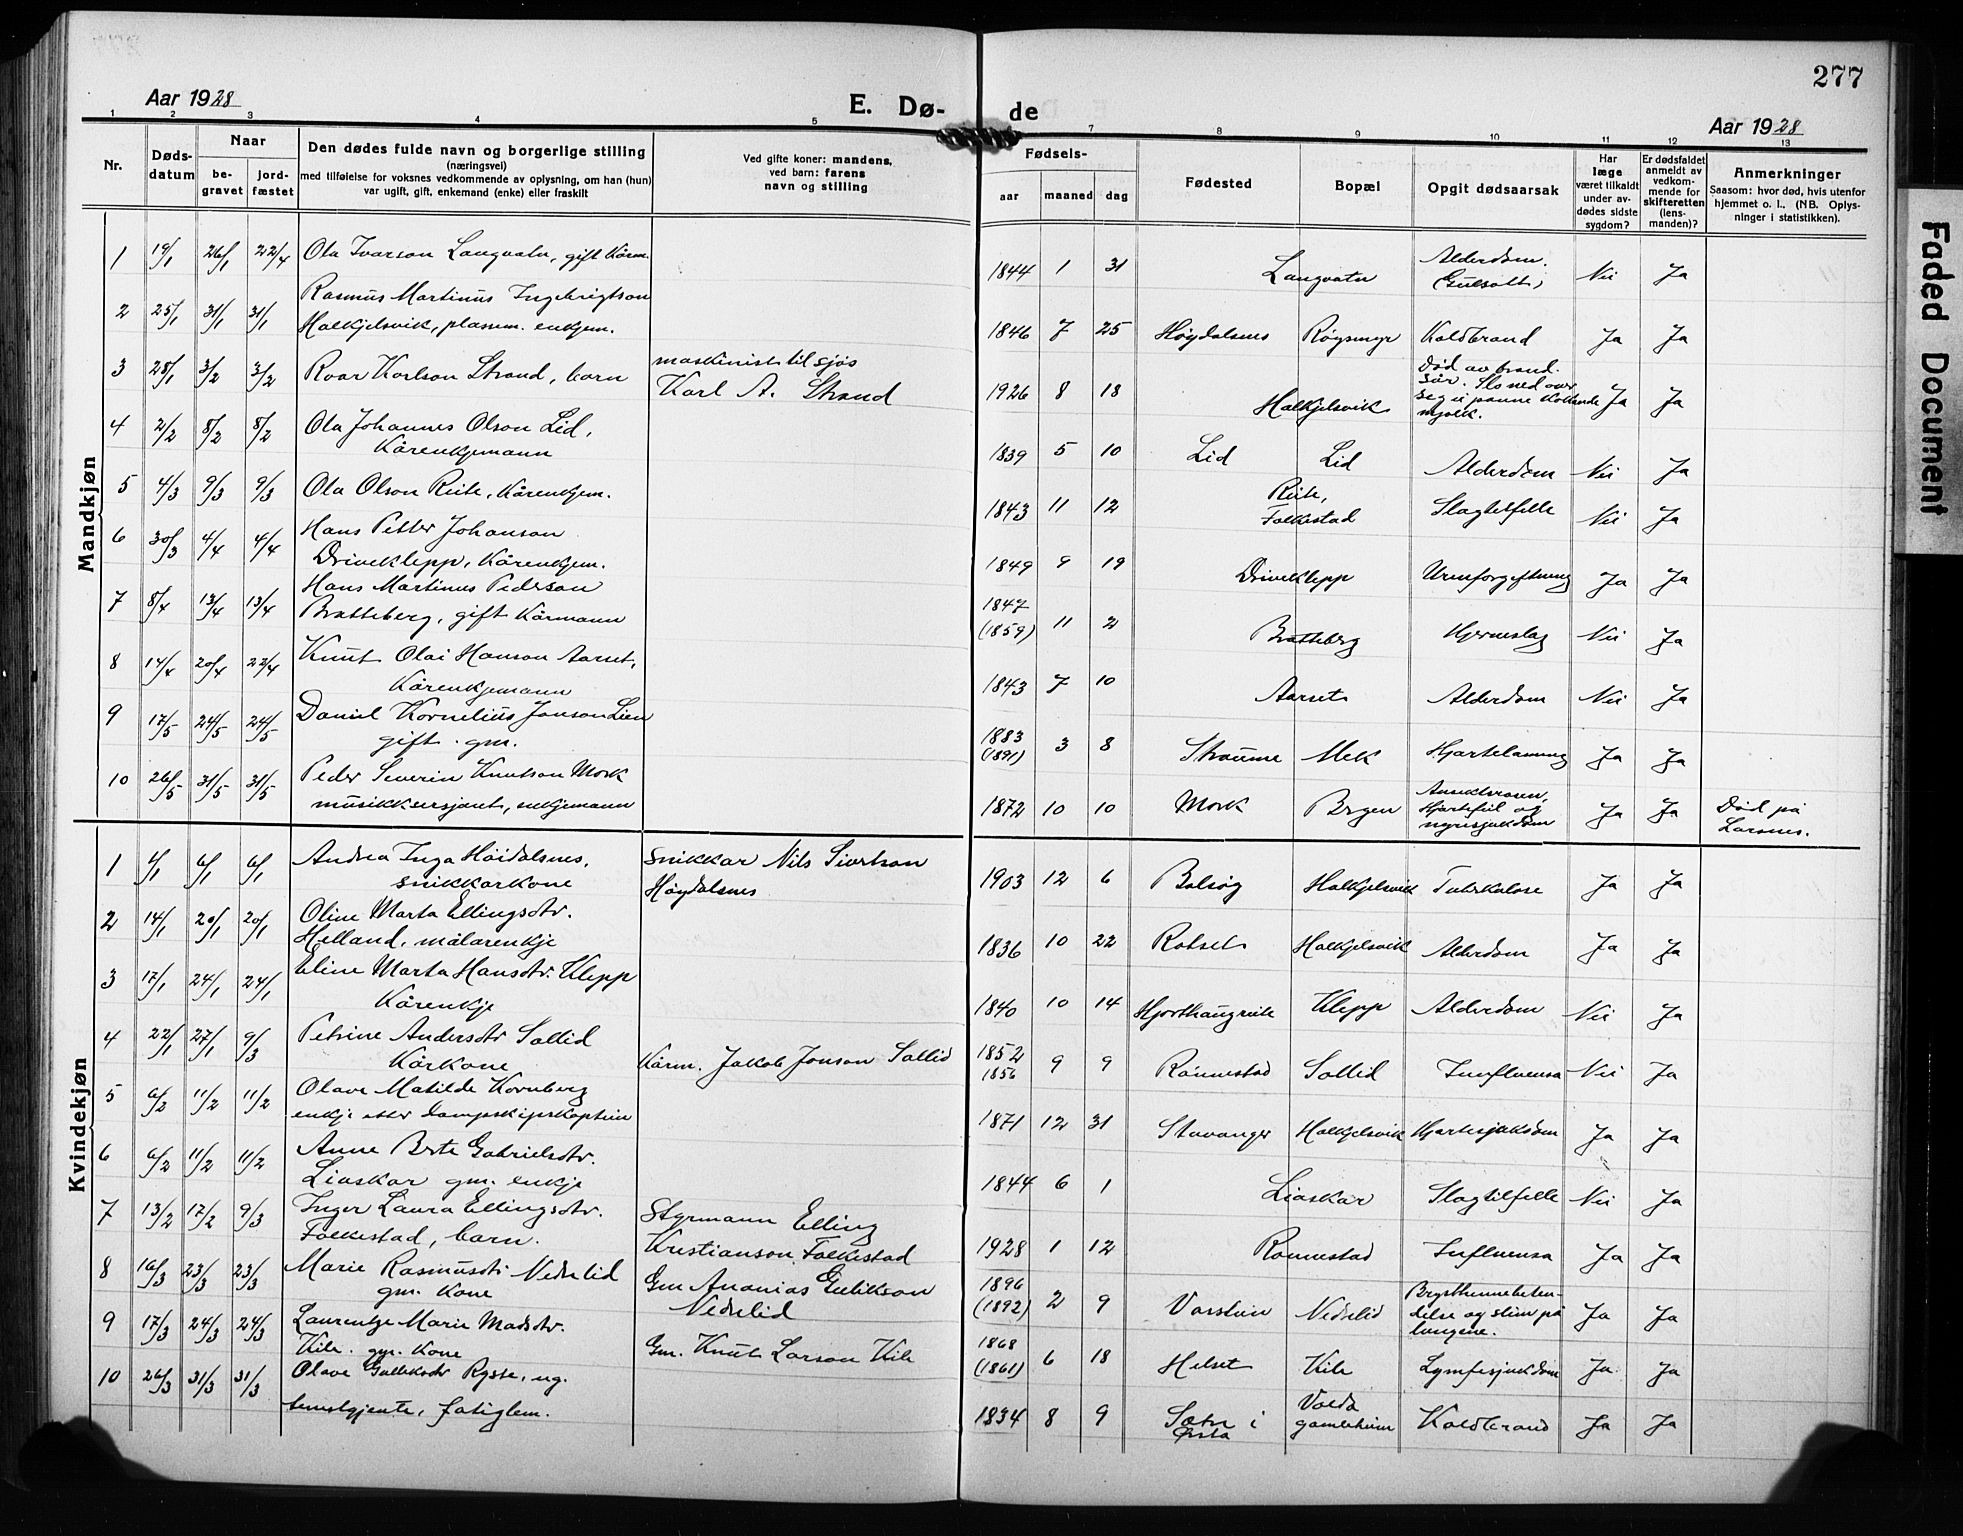 277
Aar 1928
E. Dø-
de
Aar 1928
1 2 3 4 5 7 8 9 10 11 12 13
Nr.
Døds-
datum
Naar
be-
gravet
jord-
fæstet
Den dødes fulde navn og borgerlige stilling
(næringsvei)
med tilføielse for voksnes vedkommende av oplysning, om han (hun)
var ugift, gift, enkemand (enke) eller fraskilt
Ved gifte koner: mandens,
ved barn: farens
navn og stilling
Fødsels-
aar maaned dag
Fødested
Bopæl
Opgit dødsaarsak
Har
læge
været tilkaldt
under av-
dødes sidste
sygdom?
Er dødsfaldet
anmeldt av
vedkom-
mende for
skifteretten
(lens-
manden)?
Anmerkninger
Saasom: hvor død, hvis utenfor
hjemmet o. l., (NB. Oplys-
ninger i statistikken).
Mandkjøn
1 19/1 26/1 22/4 Ola Ivarson Langvatn, gift Kårm. 1844 1 31 Langvatn Alderdom. Nei Ja
(Gulsott)
2 25/1 31/1 31/1 Rasmus Martinus Ingebrigtson
Halkjelsvik, plassm. enkjem. 1846 7 25 Høydalsnes Røysmyr Koldbrand Ja Ja
3 28/1 3/2 3/2 Roar Karlson Strand, barn maskinist til sjøs
Karl A. Strand 1926 8 18 Halkjelsvik Død av brand-
sår. Slo ned over
seg ei panne kokande
mjølk. Ja Ja
4 2/2 8/2 8/2 Ola Johannes Olson Lid,
Kårenkjemann 1839 5 10 Lid Lid Alderdom Nei Ja
5 4/3 9/3 9/3 Ola Olson Reite, Kårenkjem. 1843 11 12 Reite,
Folkestad Slagtilfelle Nei Ja
6 30/3 4/4 4/4 Hans Petter Johanson
Driveklepp, Kårenkjem. 1849 9 19 Driveklepp Urinforgiftning Ja Ja
7 8/4 13/4 13/4 Hans Martinus Pederson
Bratteberg, gift Kårmann 1847
(1859) 11 2 Bratteberg Hjerneslag Nei Ja
8 14/4 20/4 22/4 Knut Olai Hanson Aarset,
Kårenkjemann 1843 7 10 Aarset Alderdom Nei Ja
9 17/5 24/5 24/5 Daniel Kornelius Jonson Lien
gift. gm. 1883
(1891) 3 8 Straume Mek Hjartelamning Ja Ja
10 26/5 31/5 31/5 Peder Severin Knutson Mork
musikksersjant, enkjemann 1872 10 10 Mork Bergen
Hjartefeil og
nyresjukdom Ja Ja Død på
Larsnes.
Kvindekjøn
1 1/1 6/1 6/1 Andrea Inga Höidalsnes,
snikkarkone snikkar Nils Sivertson
Høydalsnes 1903 12 6 Bolsøy Halkjelsvik Tuberkulose Ja Ja
2 14/1 20/1 20/1 Oline Marta Ellingsdtr.
Helland, målarenkje 1836 10 22 Rotset Halkjelsvik Alderdom Ja Ja
3 17/1 24/1 24/1 Eline Marta Hansdtr. Klepp
Kårenkje 1840 10 14 Hjorthaugreite Klepp Alderdom Nei Ja
4 22/1 27/1 9/3 Petrine Andersdtr Sollid
Kårkone Kårm. Jakob Jonson Sollid 1852
1856 9 9 Rönnestad Sollid Innfluensa Nei Ja
5 6/2 11/2 11/2 Olave Matilde Kornberg
enkje etter dampskipskaptein 1871 12 31 Stavanger Halkjelsvik Hjartesjukdom Ja Ja
6 6/2 11/2 11/2 Anne Berte Gabrielsdtr.
Liaskar gm. enkje 1844 6 1 Liaskar Slagtilfelle Nei Ja
7 13/2 17/2 9/3 Inger Laura Ellingsdtr.
Folkestad, barn. Styrmann Elling
Kristianson Folkestad 1928 1 12 Rönnestad Influensa Ja Ja
8 16/3 23/3 23/3 Marie Rasmusdtr Nedrelid
gm. Kone Gm Ananias Gullikson
Nedrelid 1896
(1892) 2 9 Vasstein Nedrelid Brysthinnebeten-
delse og slim på
lungene. Ja Ja
9 17/3 24/3 24/3 Laurentze Marie Madsdtr.
Kile. gm. Kone Gm. Knut Larson Kile 1868
(1861) 6 18 Helset Kile Lymfesjukdom Ja Ja
10 26/3 31/3 31/3 Olave Gulleksdtr Rysse, ug.
tenestgjente, fatiglem. 1834 8 9 Sætre i
Ørsta Volda
gamleheim Koldbrand Ja Ja
Faded Document